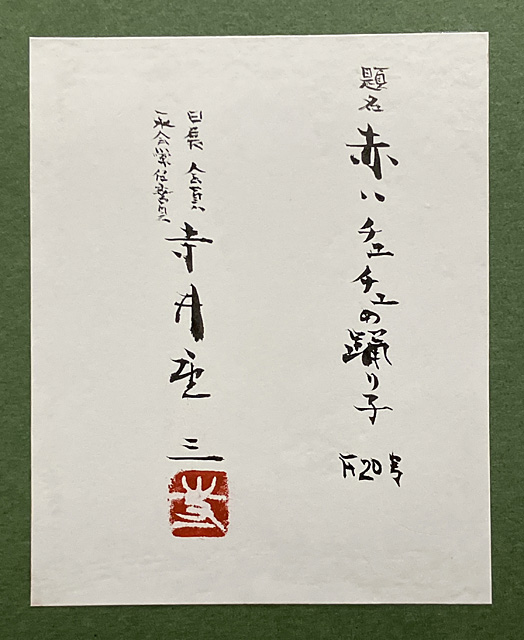 題名
赤いチュチュの踊り子
F20号
日展 会員
一水会常任委員
寺井重三